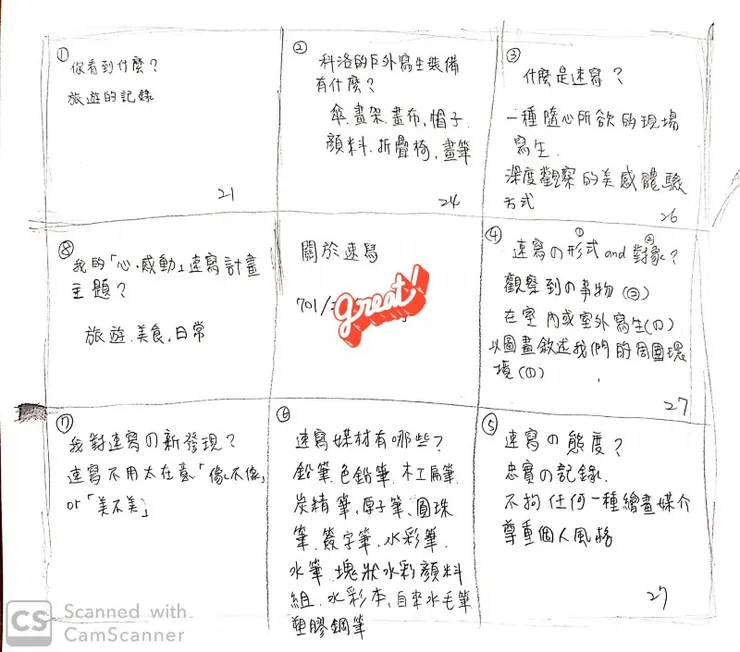 ①
你看到什麼？
旅遊的記錄
21
②
科洛的戶外寫生裝備
有什麼？
傘.畫架.畫布,帽子
顏料.折疊椅,畫筆
24
③
什麼是速寫？
一種隨心所欲的現場
寫生.
深度觀察的美感體驗
方式
26
⑧
我的「心‧感動」速寫計畫
主題？
旅遊.美食,日常
關於速寫
701/
great!
④
速寫の形式and對象？
① ②
觀察到の事物(②)
在室內或室外寫生(①)
以圖畫敘述我們的周圍環
境(①)
27
⑦
我對速寫の新發現？
速寫不用太在意「像不像」
or「美不美」
⑥
速寫媒材有哪些？
鉛筆.色鉛筆.木工扁筆.
炭精筆,原子筆.圓珠
筆.簽字筆.水彩筆.
水筆.塊狀水彩顏料
組.水彩本,自來水毛筆
塑膠鋼筆
⑤
速寫の態度？
忠實の記錄.
不拘任何一種繪畫媒介
尊重個人風格
27
CS Scanned with
CamScanner